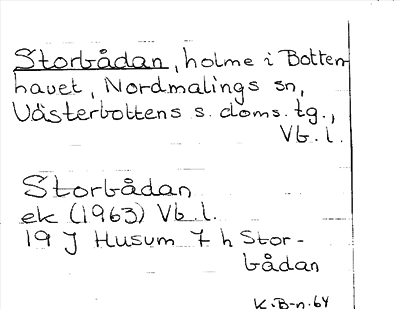 Storbådan, holme i Botten-
havet, Nordmalings sn,
Västerbottens s. doms. tg.,
Vb. l.
Storbådan
ek (1963) Vb. l.
19 J Husum 7 h Stor-
bådan
K.B-n.64